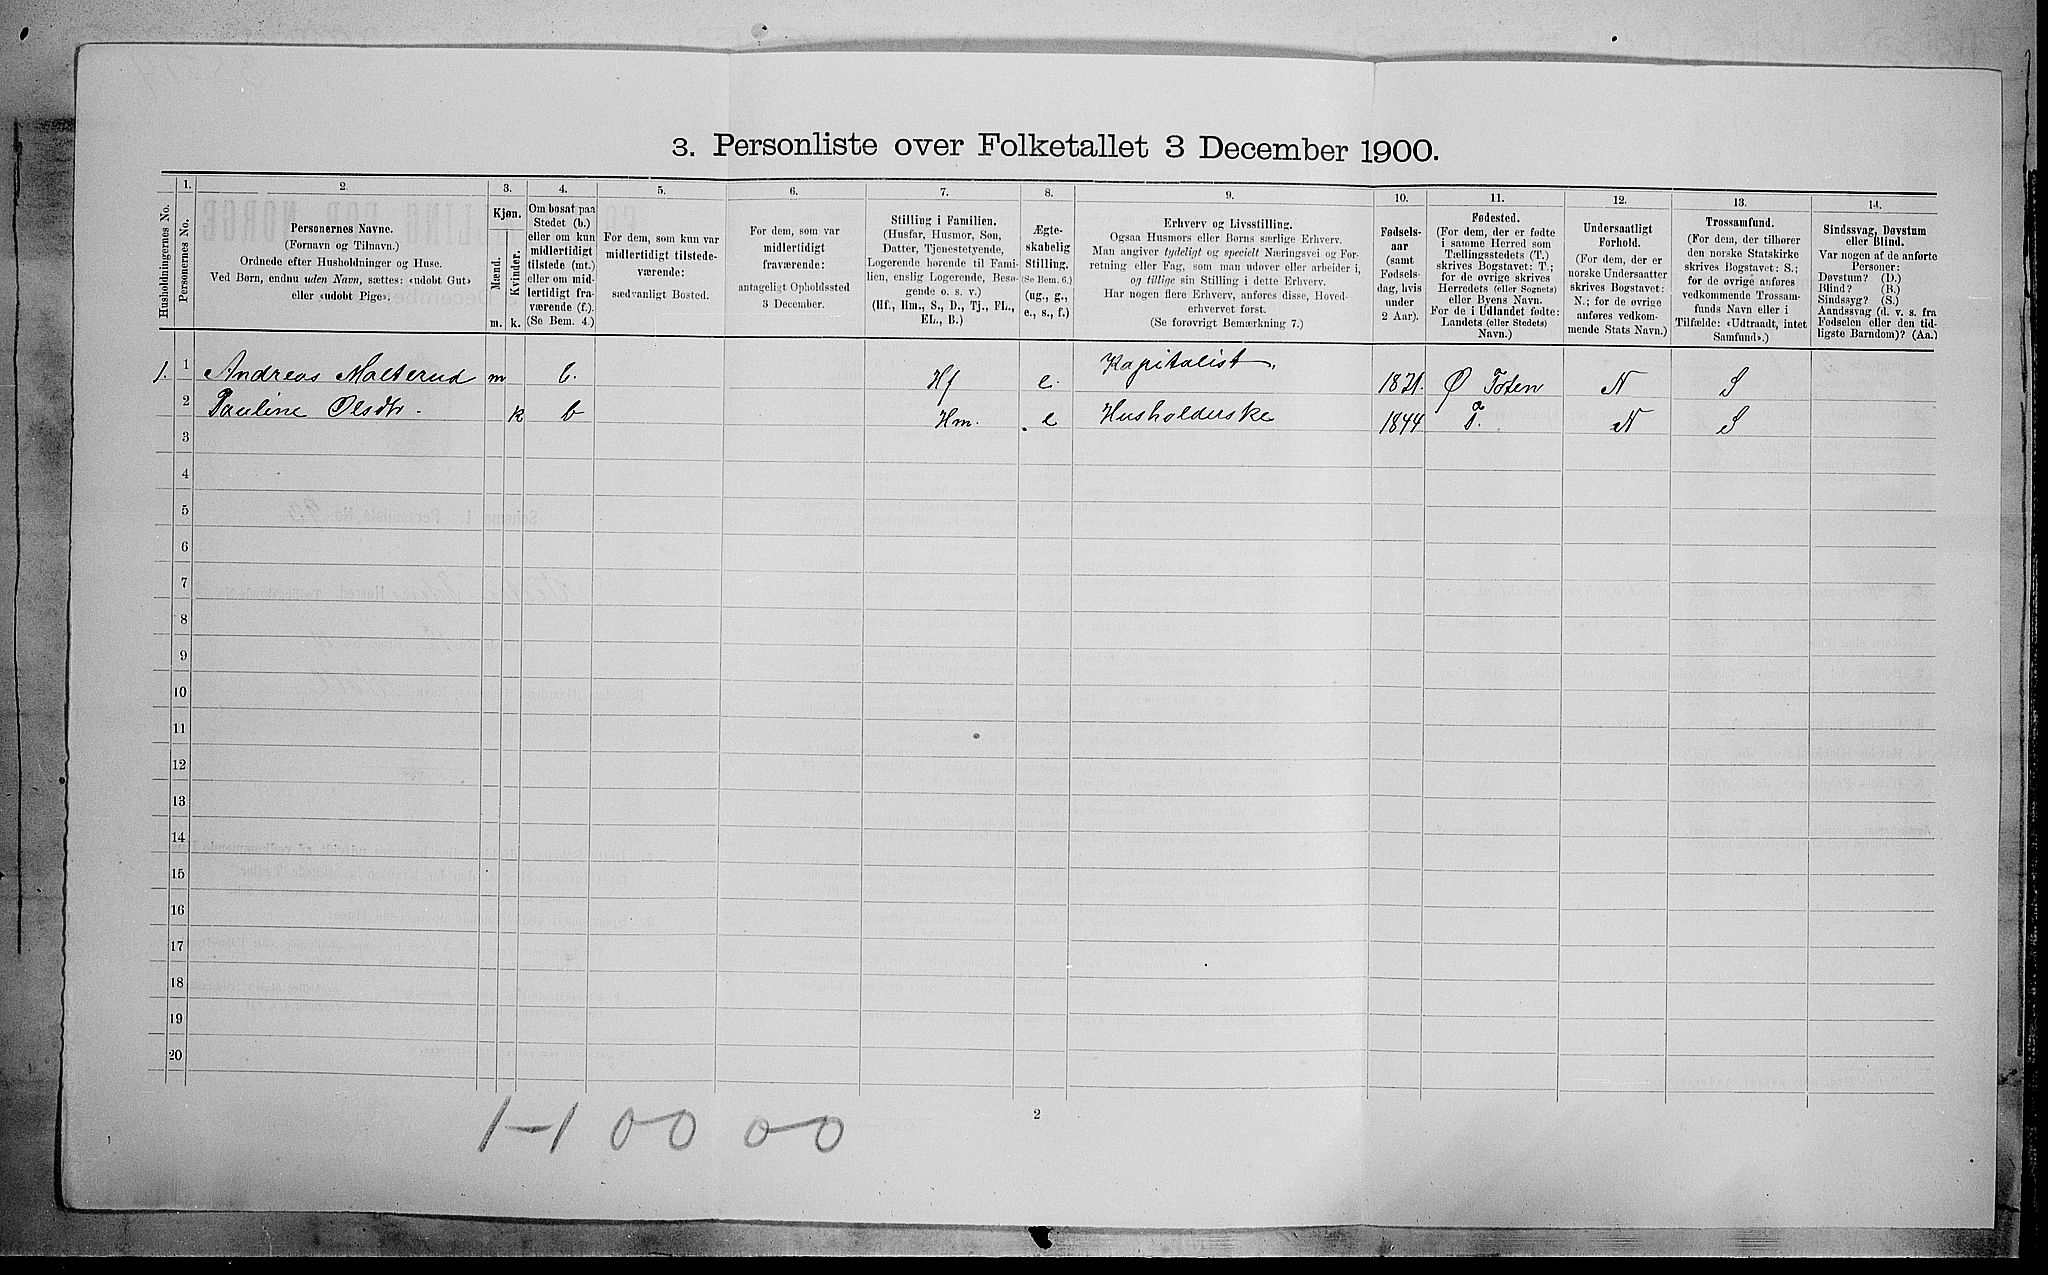 3. Personliste over Folketallet 3 December 1900.
Husholdningernes No.
1. Personernes No.
2. Personernes Navne. (Fornavn og Tilnavn.) Ordnede efter Husholdninger og Huse. Ved Børn, endnu uden Navn, sættes: «udobt Gut» eller «udobt Pige».
3. Kjøn. Mænd. m. Kvinder. k.
4. Om bosat paa Stedet (b.) eller om kun midlertidigt tilstede (mt.) eller om midlertidigt fraværende (f.). (Se Bem. 4.)
5. For dem, som kun var midlertidigt tilstedeværende: sædvanligt Bosted.
6. For dem, som var midlertidigt fraværende: antageligt Opholdssted 3 December.
7. Stilling i Familien. (Husfar, Husmor, Søn, Datter, Tjenestetyende, Logerende hørende til Familien, enslig Logerende, Besøgende o. s. v.) (Hf., Hm., S., D., Tj., FL., EL., B.)
8. Ægteskabelig Stilling. (Se Bem. 6.) (ug., g., e., s., f.)
9. Erhverv og Livsstilling. Ogsaa Husmors eller Børns særlige Erhverv. Man angiver tydeligt og specielt Næringsvei og Forretning eller Fag, som man udøver eller arbeider i, og tillige sin Stilling i dette Erhverv. Har nogen flere Erhverv, anføres disse, Hovederhvervet først. (Se forøvrigt Bemærkning 7.)
10. Fødselsaar (samt Fødselsdag, hvis under 2 Aar).
11. Fødested. (For dem, der er fødte i samme Herred som Tællingsstedets (T.) skrives Bogstavet: T.; for de øvrige skrives Herredets (eller Sognets) eller Byens Navn. For de i Udlandet fødte: Landets (eller Stedets) Navn.)
12. Undersaatligt Forhold. (For dem, der er norske Undersaatter skrives Bogstavet: N.; for de øvrige anføres vedkommende Stats Navn.)
13. Trossamfund. (For dem, der tilhører den norske Statskirke skrives Bogstavet: S.; for de øvrige anføres vedkommende Trossamfunds Navn eller i Tilfælde: «Udtraadt, intet Samfund».)
14. Sindssvag, Døvstum eller Blind. Var nogen af de anførte Personer: Døvstum? (D.) Blind? (B.) Sindssyg? (S.) Aandssvag (d. v. s. fra Fødselen eller den tidligste Barndom)? (Aa.)
1. 1 Andreas Malterud m b. Hf e. Kapitalist. 1821. Ø Toten N S
2 Pauline Olsdtr. k b Hm. e Husholderske 1844 T. N S
3
4
5
6
7
8
9
10
11
12
13
14
15
16
17
18
19
20
2
1-1 00 00